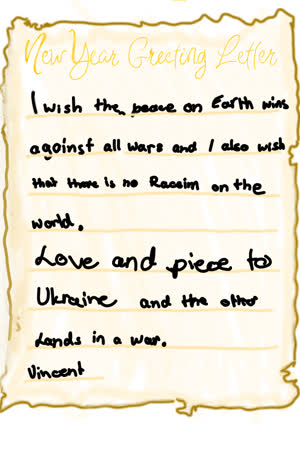 New Year Greeting Letter
I wish the peace on Earth wins
against all wars and I also wish
that there is no Racsim on the
world.
Love and piece to
Ukraine and the other
Lands in a war.
Vincent